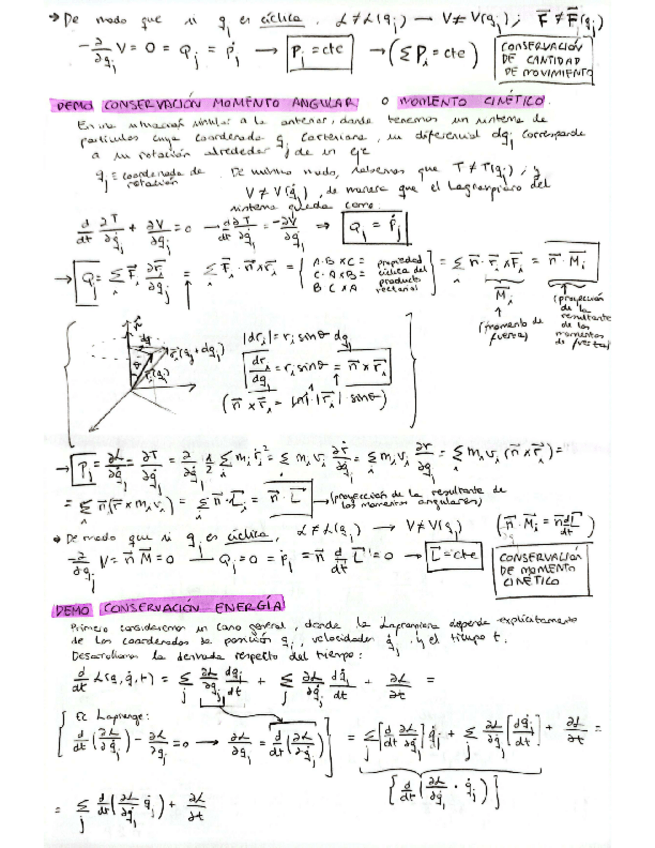 → De modo que si q_j es cíclica, ℒ ≠ ℒ(q_j) → V ≠ V(q_j); F⃗ ≠ F⃗(q_j)
-∂/∂q_j V = 0 = Q_j = ṗ_j → P_j = cte → (Σ P_i = cte) CONSERVACIÓN DE CANTIDAD DE MOVIMIENTO
DEMO CONSERVACIÓN MOMENTO ANGULAR O MOMENTO CINÉTICO.
En una situación similar a la anterior, donde tenemos un sistema de
partículas cuya coordenada q_j cartesiana, su diferencial dq_j corresponde
a su rotación alrededor de un eje
q_j ≡ coordenada de rotación. De mismo modo, sabemos que T ≠ T(q_j) y
V ≠ V(q̇_j), de manera que el Lagrangiano del
sistema queda como:
d/dt ∂T/∂q̇_j + ∂V/∂q_j = 0 → d/dt ∂T/∂q̇_j = -∂V/∂q_j ⇒ Q_j = Ṗ_j
→ Q_j = Σ_i F⃗_i ∂r⃗_i/∂q_j = Σ_i F⃗_i · n⃗ × r⃗_i = { A·B×C = C·A×B = B·C×A propiedad cíclica del producto vectorial } = Σ_i n⃗ · r⃗_i × F⃗_i = n⃗ · M⃗_i
M⃗_i
↑
(momento de fuerza)
(proyección de la resultante de los momentos de fuerza)
|dr_i| = r_i senθ dq_j
dr_i/dq_j = r_i senθ = n⃗ × r⃗_i
(n⃗ × r⃗_i = |n⃗| · |r⃗_i| · senθ)
→ P_j = ∂ℒ/∂q̇_j = ∂T/∂q̇_j = ∂/∂q̇_j ½ Σ_i m_i ṙ_i² = Σ_i m_i v_i ∂ṙ/∂q̇_j = Σ_i m_i v_i ∂r/∂q_j = Σ_i m_i v_i (n⃗ × r⃗_i) =
= Σ_i n⃗(r⃗ × m_i v_i) = Σ_i n⃗ · L⃗_i = n⃗ · L⃗ → (proyección de la resultante de los momentos angulares)
→ De modo que si q_j es cíclica, ℒ ≠ ℒ(q_j) → V ≠ V(q_j) (n⃗ · M⃗_i = n⃗ dL⃗/dt)
-∂/∂q_j V = n⃗ M⃗ = 0 → Q_j = 0 = ṗ_j = n⃗ d/dt L⃗ = 0 → L⃗ = cte CONSERVACIÓN DE MOMENTO CINÉTICO
DEMO CONSERVACIÓN ENERGÍA
Primero consideremos un caso general, donde la Lagrangiana depende explícitamente
de las coordenadas de posición q_j, velocidades q̇_j y el tiempo t.
Desarrollamos la derivada respecto del tiempo:
d/dt ℒ(q, q̇, t) = Σ_j ∂ℒ/∂q_j dq_j/dt + Σ_j ∂ℒ/∂q̇_j dq̇_j/dt + ∂ℒ/∂t =
{ Ec Lagrange: d/dt(∂ℒ/∂q̇_j) - ∂ℒ/∂q_j = 0 → ∂ℒ/∂q_j = d/dt(∂ℒ/∂q̇_j) } = Σ_j [d/dt ∂ℒ/∂q̇_j] q̇_j + Σ_j ∂ℒ/∂q̇_j [dq̇_j/dt] + ∂ℒ/∂t =
{ d/dt(∂ℒ/∂q̇_j · q̇_j) }
= Σ_j d/dt(∂ℒ/∂q̇_j q̇_j) + ∂ℒ/∂t